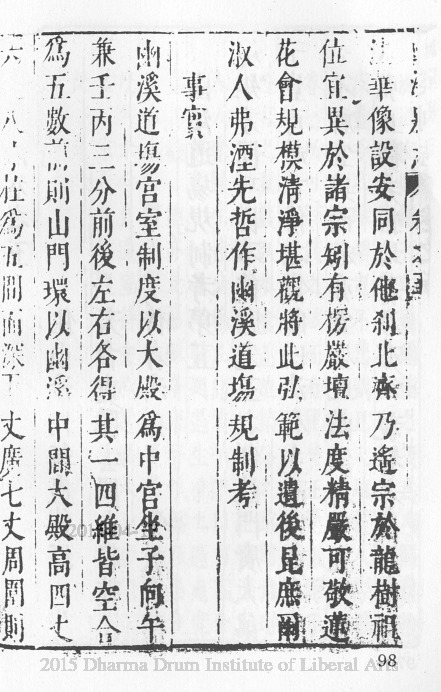 溪別志 卷之
華像設安同於他剎北齊乃遙宗於龍樹祖
位宜異於諸宗矧有楞嚴壇法度精嚴可敬蓮
花會規模清淨堪觀將此弘範以遺後昆庶爾
淑人弗湮先哲作幽溪道塲規制考
事實
幽溪道塲宮室制度以大殿為中宮坐子向午
兼壬丙三分前後左右各得其一四維皆空合
為五數前則山門環以幽溪中開大殿高四丈
六 八 柱為五間面深 丈廣七丈周圍則
98
2015 Dharma Drum Institute of Liberal Arts